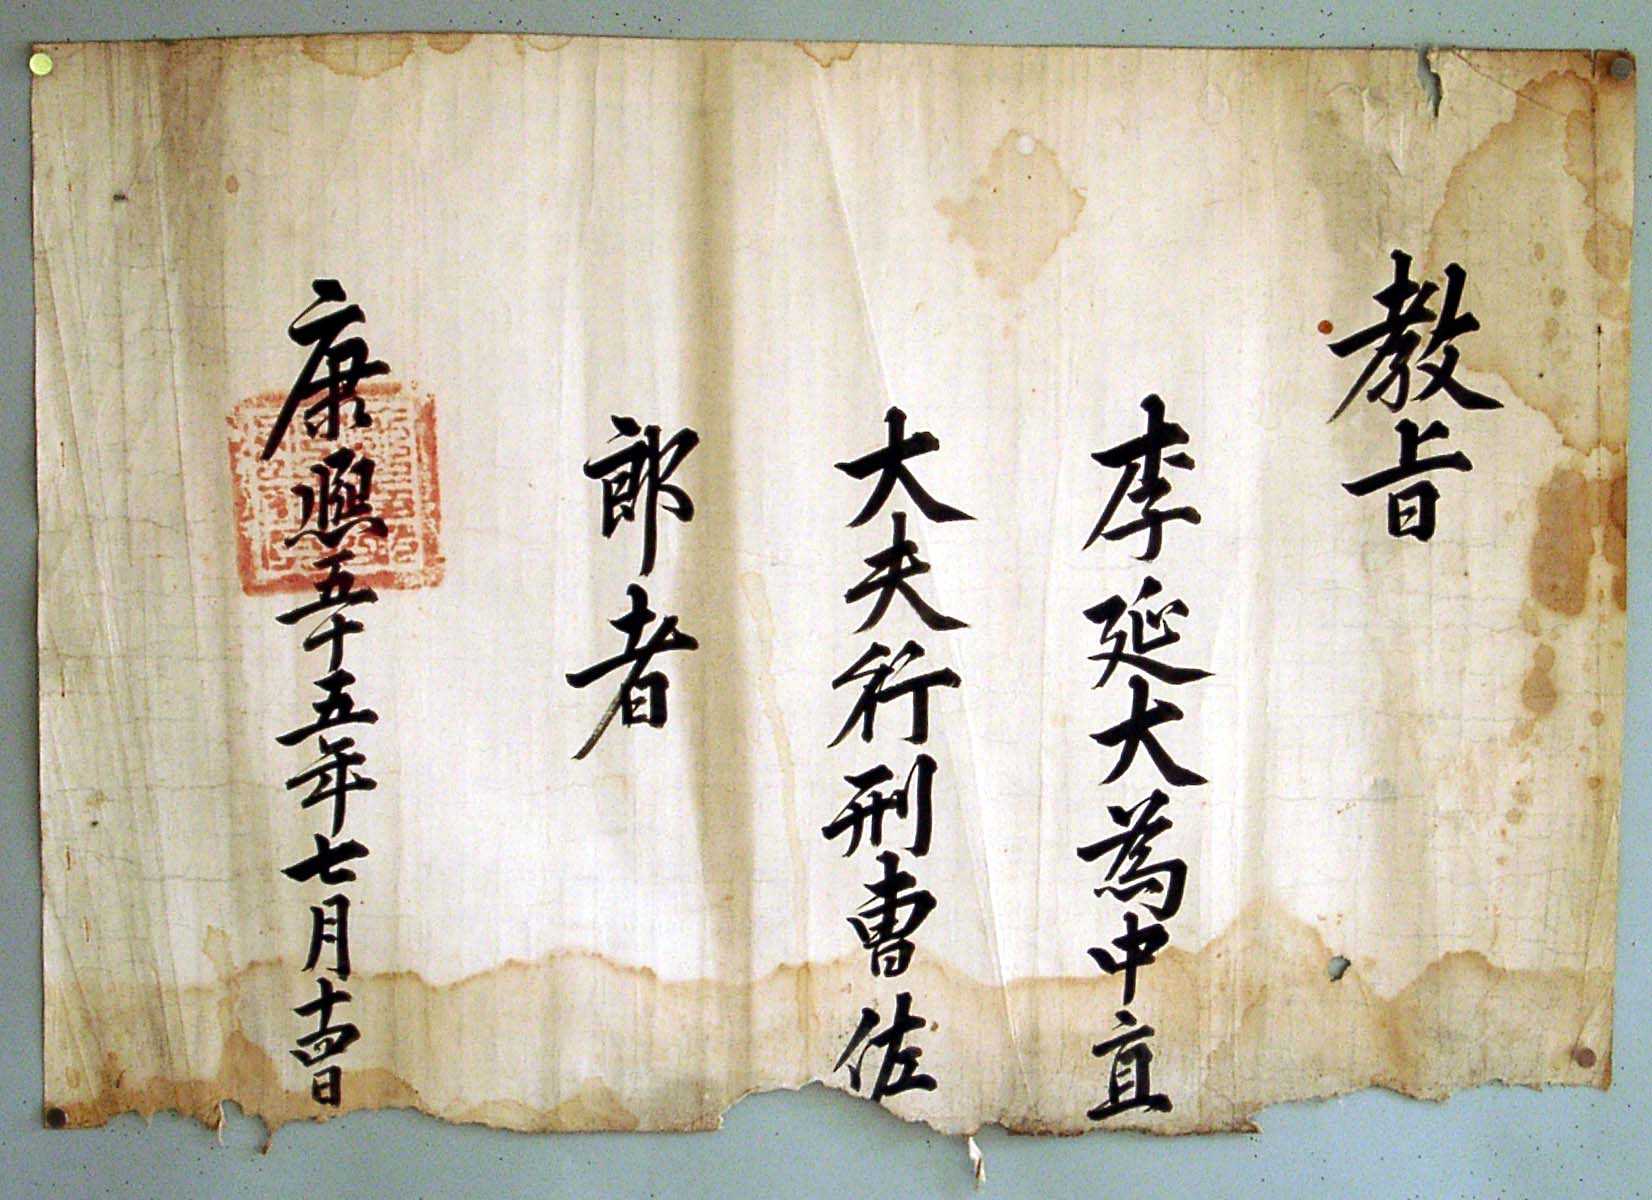 教旨
李延大為中直
大夫行刑曹佐
郎者
康熙五十五年七月十四日